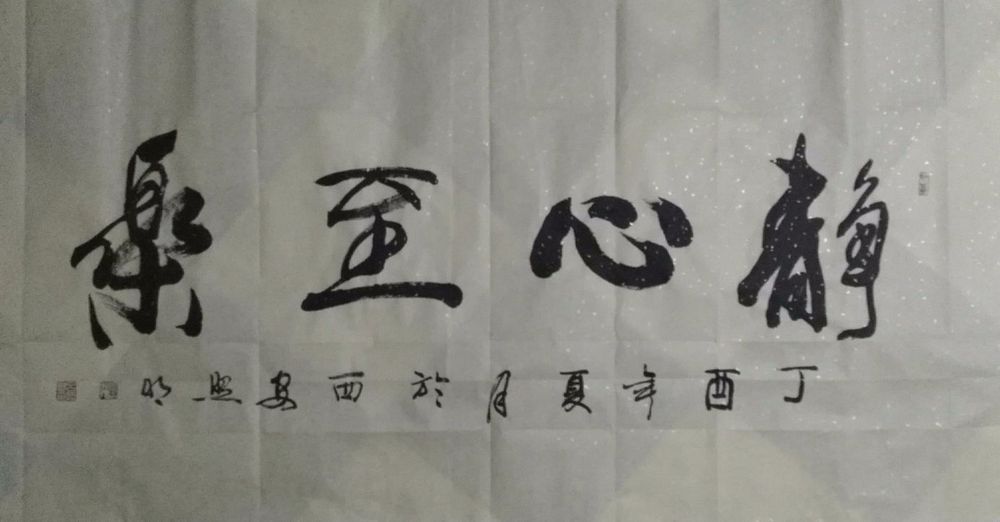 靜心至樂
丁酉年夏月於西安照明